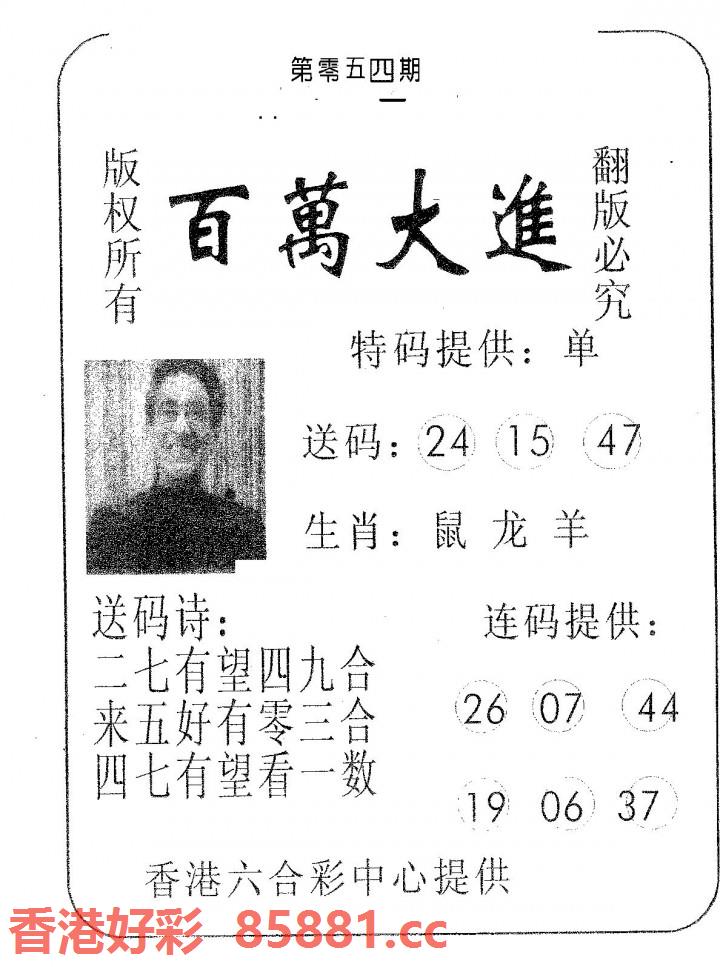 第零五四期
版权所有
百萬大進
翻版必究
特码提供：单
送码：24 15 47
生肖：鼠 龙 羊
送码诗：
二七有望四九合
来五好有零三合
四七有望看一数
连码提供：
26 07 44
19 06 37
香港六合彩中心提供
香港好彩 85881.cc